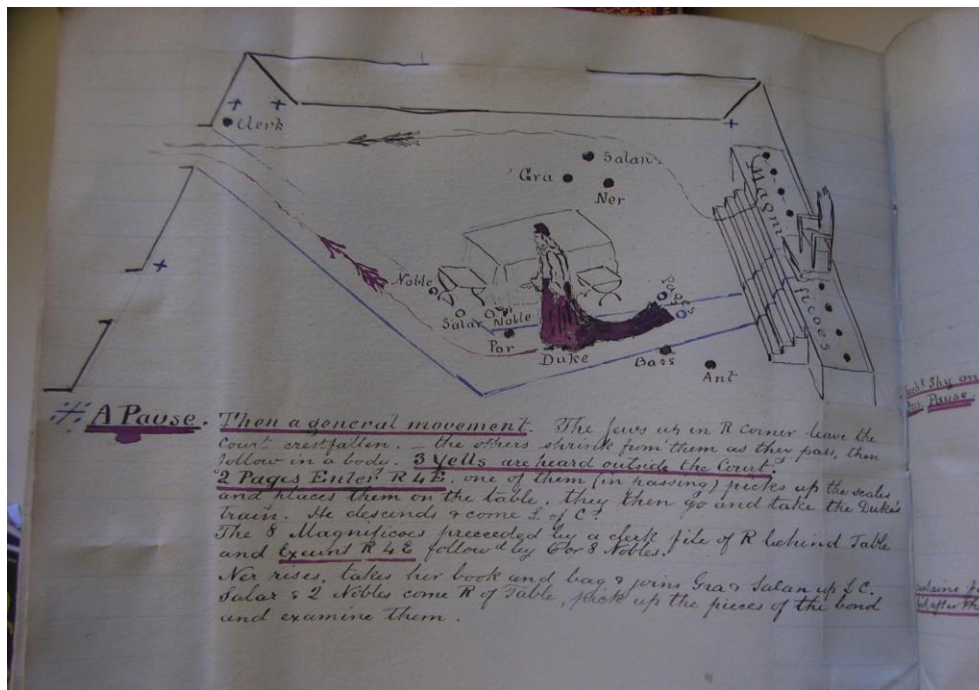 Clerk
Salan
Gra
Ner
Magni
ficoes
Noble
Salar
Noble
Por
Duke
Pages
Bass
Ant
A Pause. Then a general movement. The Jews up in R corner leave the
Court crestfallen — the others shrink from them as they pass, then
follow in a body. 3 Yells are heard outside the Court.
2 Pages Enter R 4 E, one of them (in passing) picks up the scales
and places them on the table, they then go and take the Duke's
train. He descends & come L of C.
The 8 Magnificoes preceeded by a clerk file of R behind Table
and Exeunt R 4 E followd by 6 or 8 Nobles.
Ner rises, takes her book and bag & joins Gra & Salan up L C.
Salar & 2 Nobles come R of Table, pick up the pieces of the bond
and examine them.
Shy on
Pause.
after the